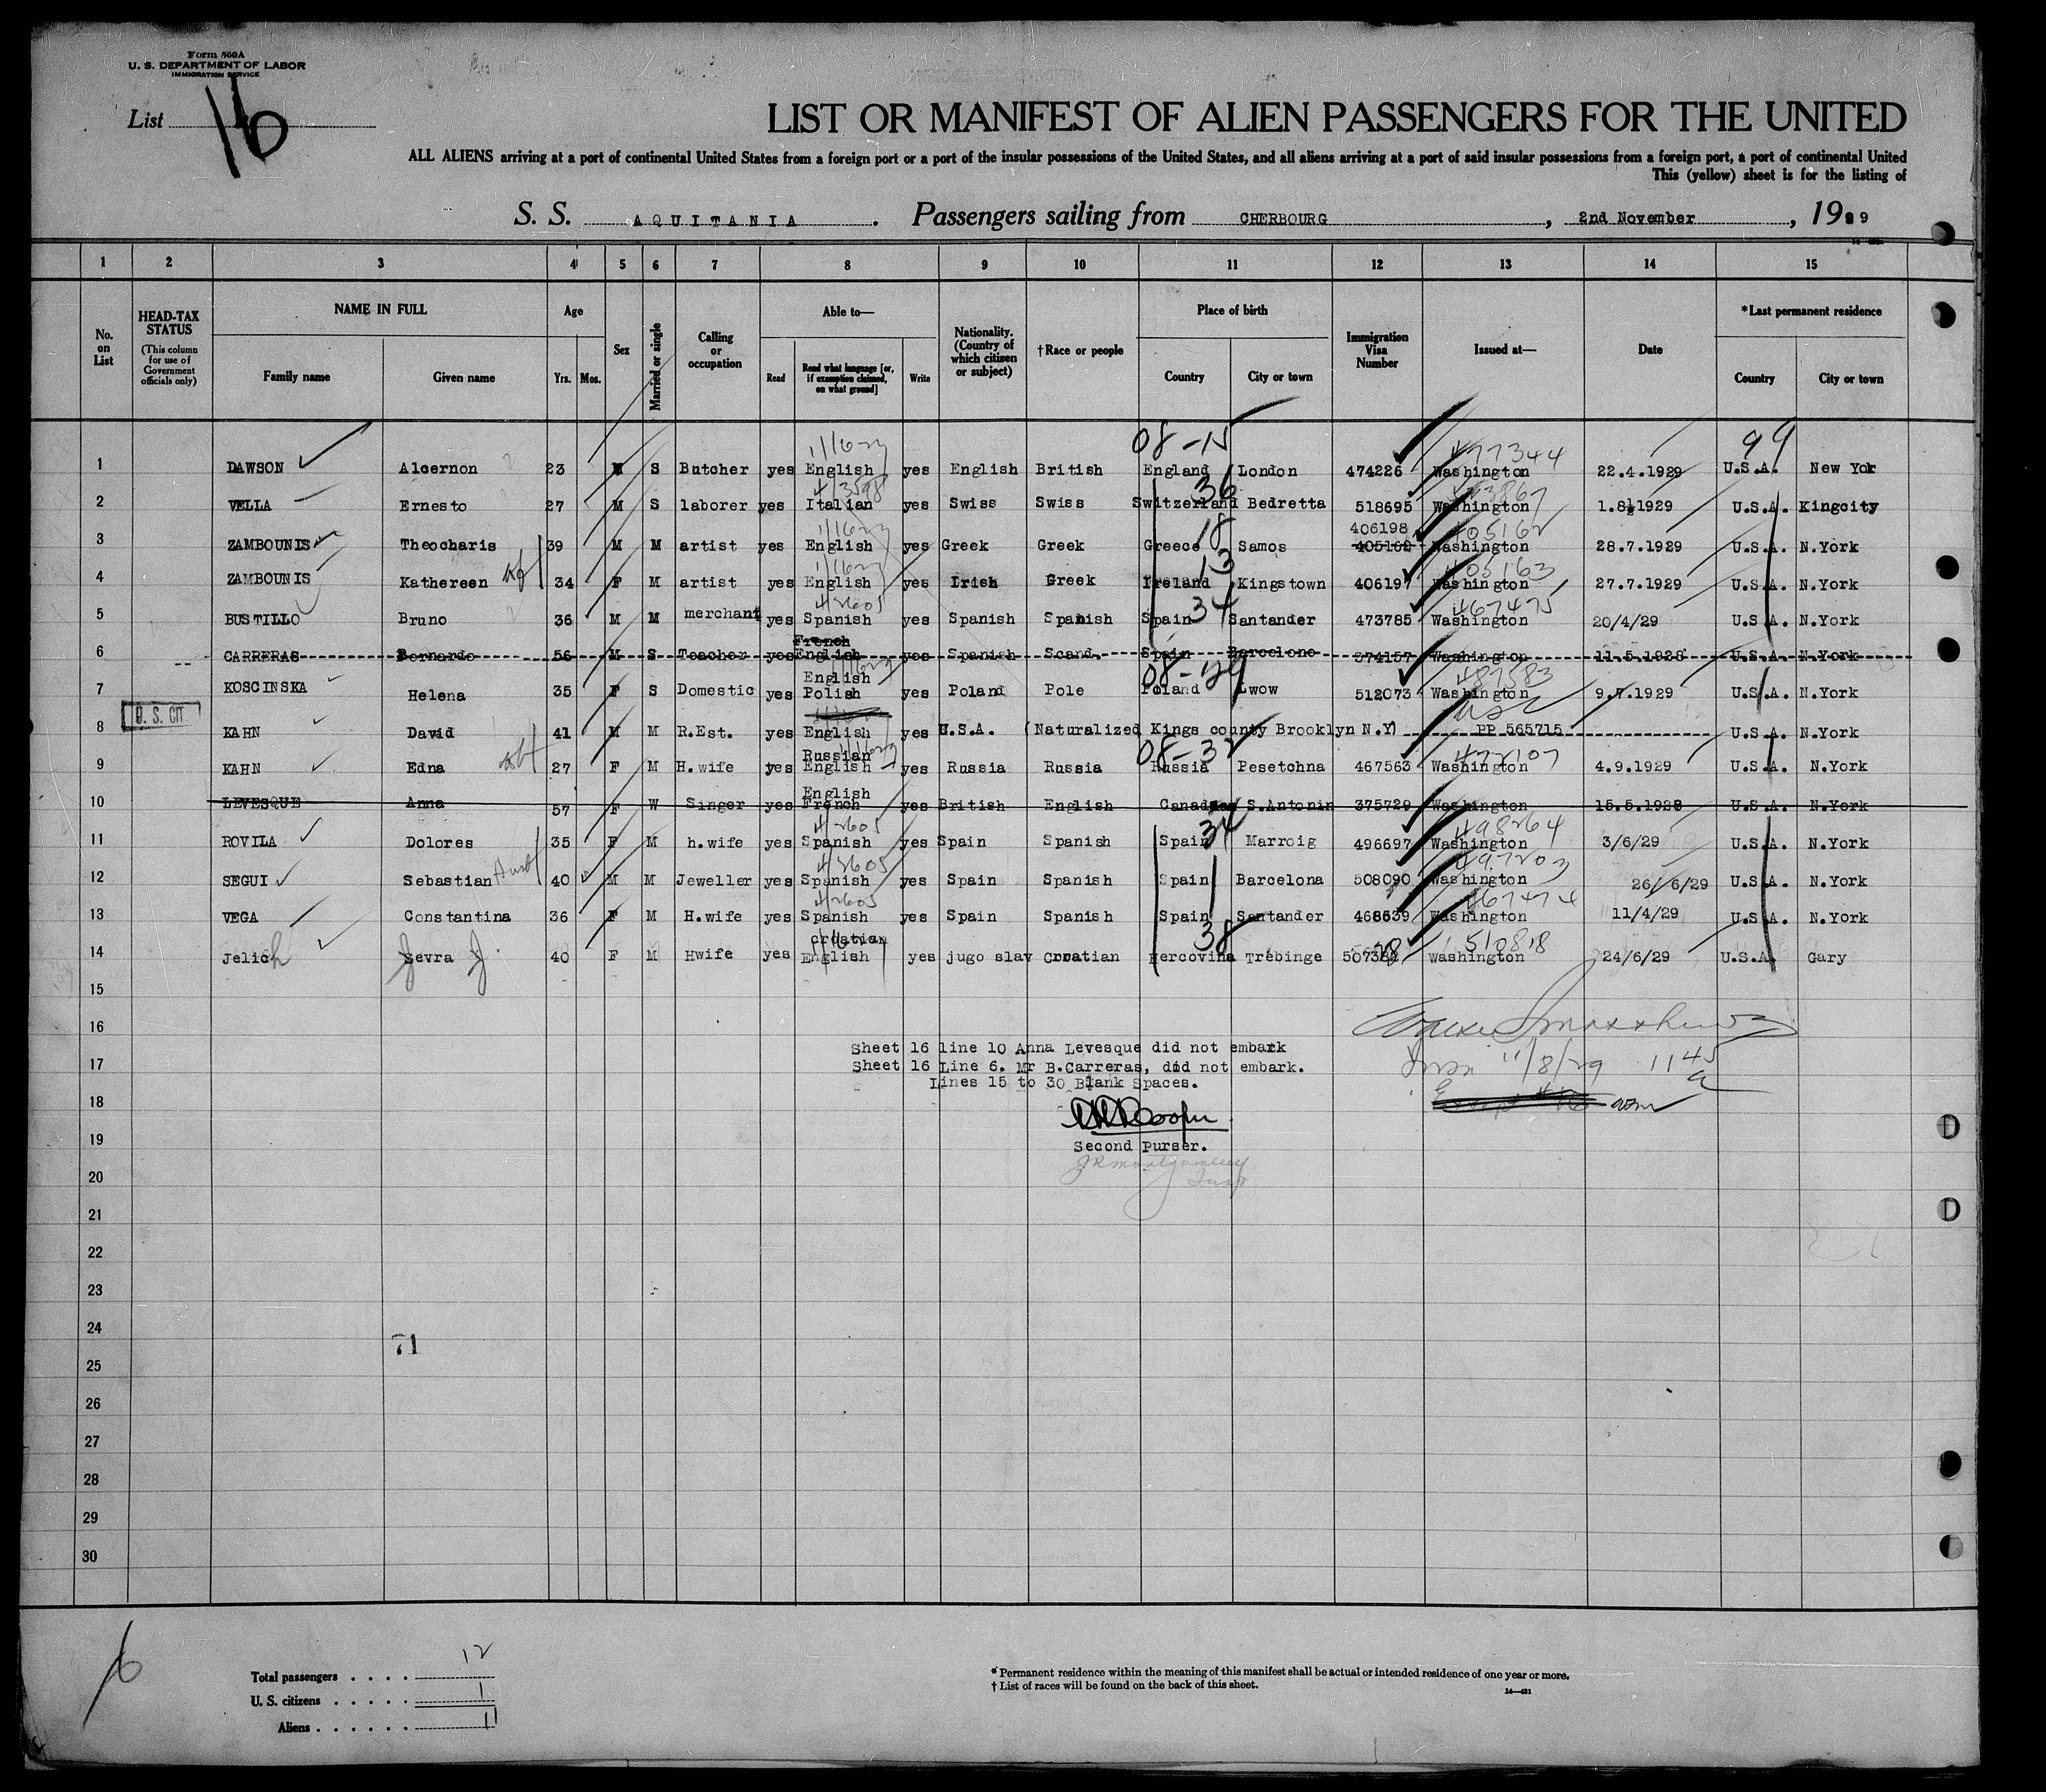 Form 500A
U. S. DEPARTMENT OF LABOR
IMMIGRATION SERVICE
List 16
LIST OR MANIFEST OF ALIEN PASSENGERS FOR THE UNITED
ALL ALIENS arriving at a port of continental United States from a foreign port or a port of the insular possessions of the United States, and all aliens arriving at a port of said insular possessions from a foreign port, a port of continental United
This (yellow) sheet is for the listing of
S. S. AQUITANIA. Passengers sailing from CHERBOURG, 2nd November, 1929
1 2 3 4 5 6 7 8 9 10 11 12 13 14 15
No. on List
HEAD-TAX STATUS (This column for use of Government officials only)
NAME IN FULL
Family name Given name
Age
Yrs. Mos.
Sex
Married or single
Calling or occupation
Able to—
Read Read what language [or, if exemption claimed, on what ground] Write
Nationality. (Country of which citizen or subject)
†Race or people
Place of birth
Country City or town
Immigration Visa Number
Issued at—
Date
*Last permanent residence
Country City or town
08-15 477344 99
1 DAWSON Alcernon 23 M S Butcher yes English yes English British England London 474226 Washington 22.4.1929 U.S.A. New York
36
2 VELLA Ernesto 27 M S laborer yes Italian yes Swiss Swiss Switzerland Bedretta 518695 Washington 1.8.1929 U.S.A. Kingcity
18 406198 405162
3 ZAMBOUNIS Theocharis 39 M M artist yes English yes Greek Greek Greece Samos 405162 Washington 28.7.1929 U.S.A. N.York
13 405163
4 ZAMBOUNIS Kathereen 34 F M artist yes English yes Irish Greek Ireland Kingstown 406197 Washington 27.7.1929 U.S.A. N.York
4/2605 34 467475
5 BUSTILLO Bruno 36 M M merchant yes Spanish yes Spanish Spanish Spain Santander 473785 Washington 20/4/29 U.S.A. N.York
French
6 CARRERAS Bernardo 56 M S Teacher yes English yes Spanish Scand. Spain Barcelone 374157 Washington 11.5.1928 U.S.A. N.York
English 487583
7 KOSCINSKA Helena 35 F S Domestic yes Polish yes Poland Pole Poland Lwow 512073 Washington 9.7.1929 U.S.A. N.York
U. S. CIT
8 KAHN David 41 M M R.Est. yes English yes U.S.A. (Naturalized Kings county Brooklyn N.Y) PP 565715 U.S.A. N.York
Russian 08-32 472107
9 KAHN Edna 27 F M H.wife yes English yes Russia Russia Russia Pesetchna 467563 Washington 4.9.1929 U.S.A. N.York
English
10 LEVESQUE Anna 57 F W Singer yes French yes British English Canada S.Antonin 375729 Washington 15.5.1928 U.S.A. N.York
4/2605 34 498264
11 ROVILA Dolores 35 F M h.wife yes Spanish yes Spain Spanish Spain Marroig 496697 Washington 3/6/29 U.S.A. N.York
4/2605 497203
12 SEGUI Sebastian 40 M M Jeweller yes Spanish yes Spain Spanish Spain Barcelona 508090 Washington 26/6/29 U.S.A. N.York
4/2605 467474
13 VEGA Constantina 36 F M H.wife yes Spanish yes Spain Spanish Spain Santander 468639 Washington 11/4/29 U.S.A. N.York
croatian 38 510818
14 Jelich Jevra J. 40 F M Hwife yes English yes jugo slav Croatian Hercovina Trébinge Washington 24/6/29 U.S.A. Gary
15
16
Sheet 16 line 10 Anna Levesque did not embark
17 Sheet 16 Line 6. Mr B.Carreras, did not embark. 11/8/29 1145 a
Lines 15 to 30 Blank Spaces.
18
19 Second Purser.
20
21
22
23
24
71
25
26
27
28
29
30
16
Total passengers . . . . 12
U. S. citizens . . . . . 1
Aliens . . . . . . 11
* Permanent residence within the meaning of this manifest shall be actual or intended residence of one year or more.
† List of races will be found on the back of this sheet.
14—421